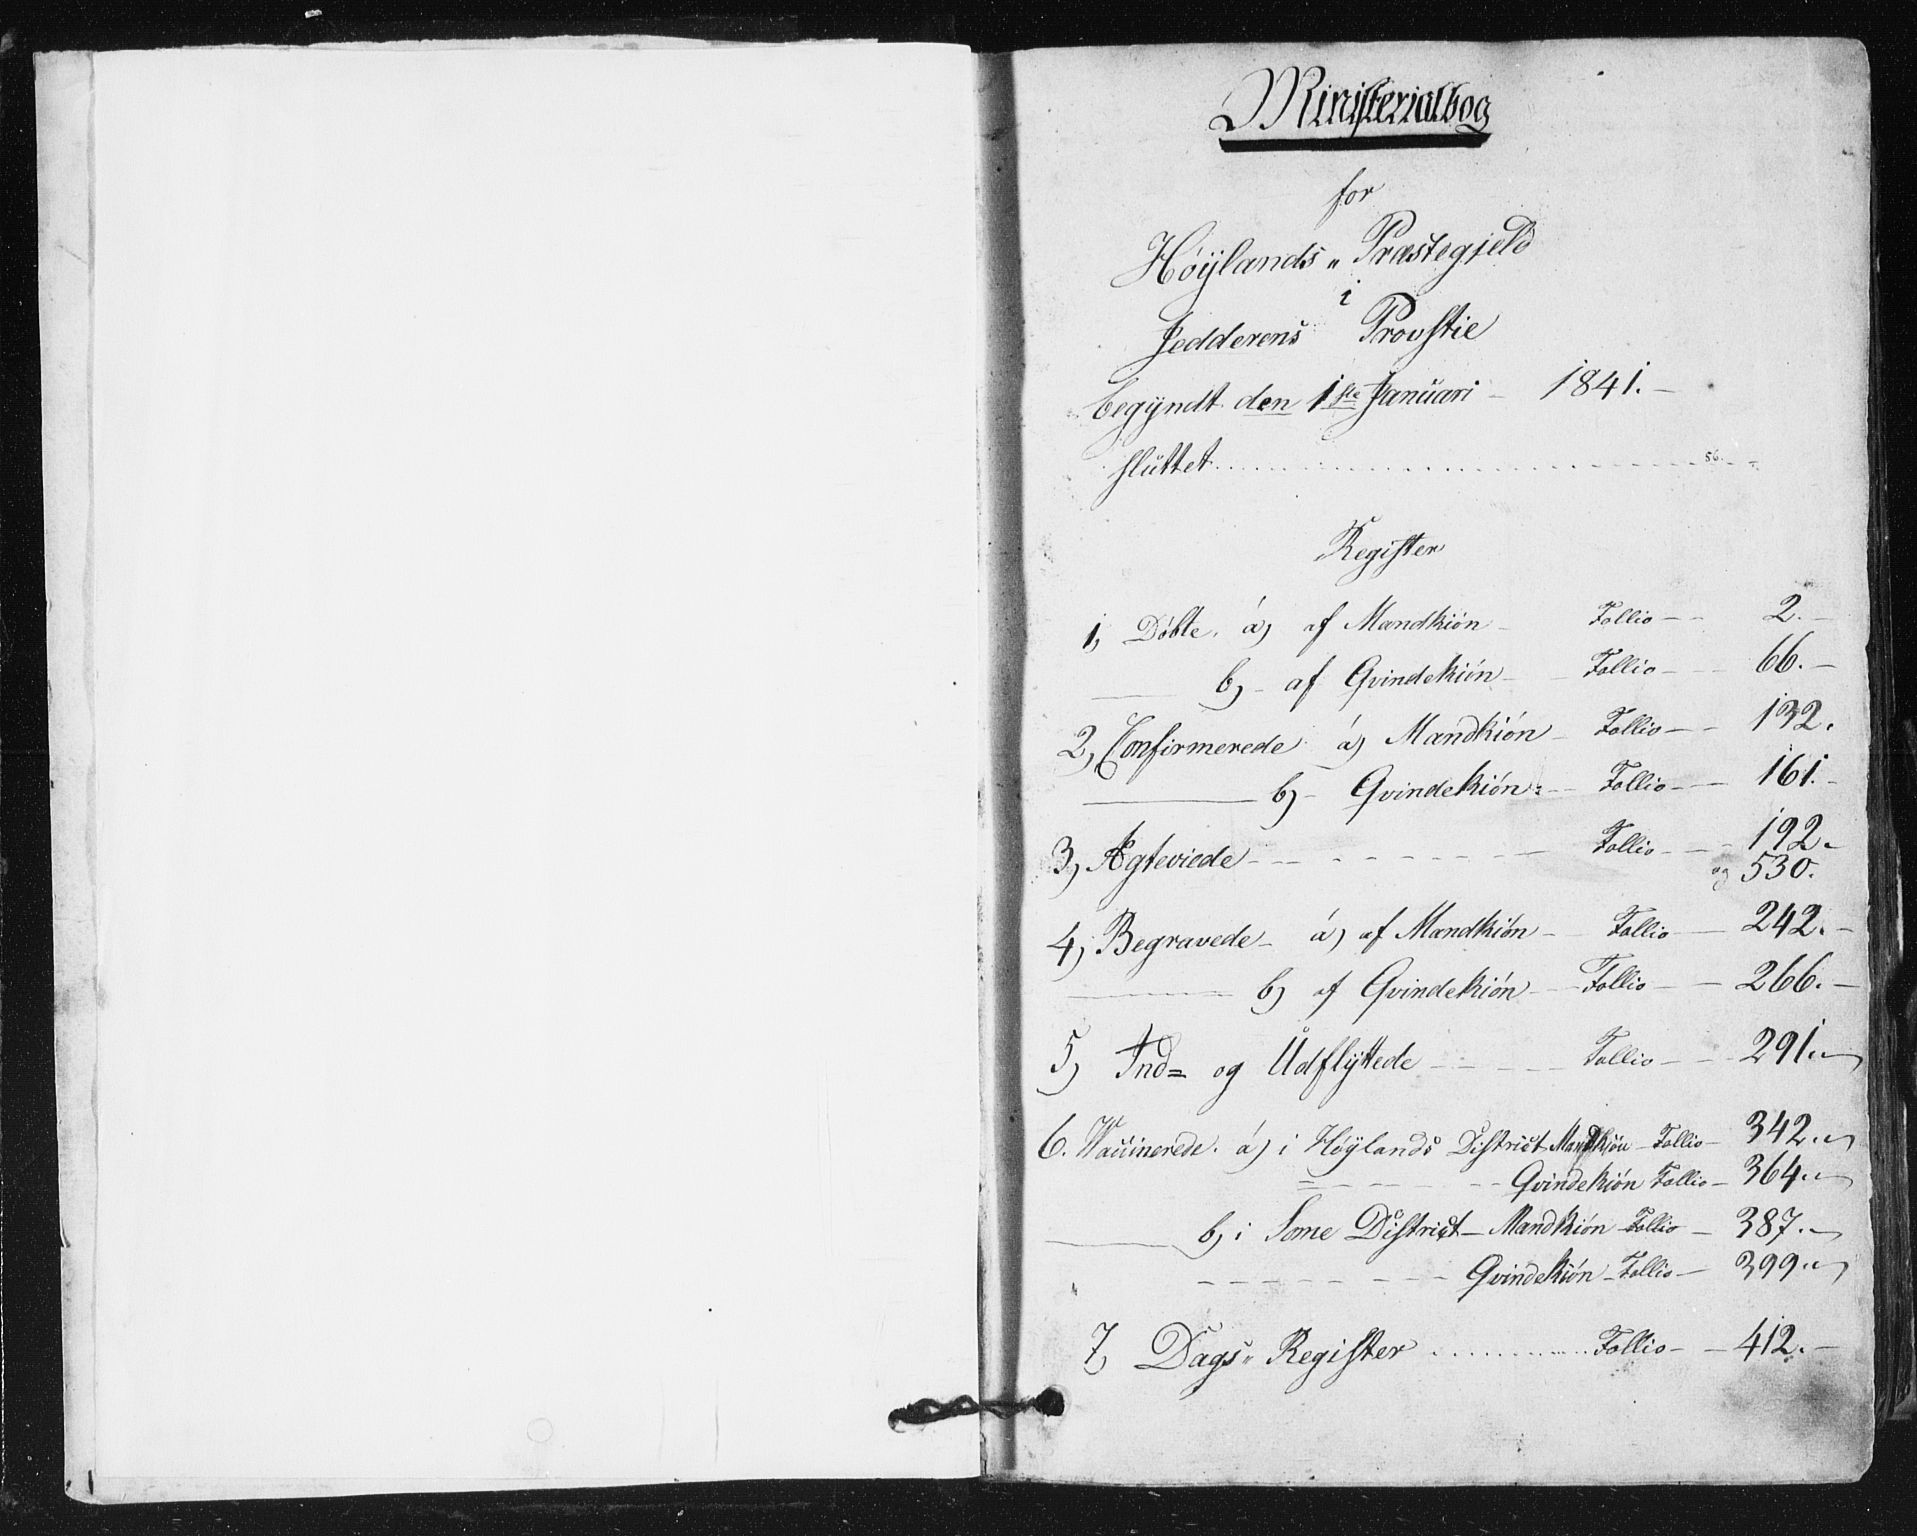 Ministerialbog
for
Höÿlands „ Præstegjeld
i
Jedderens Provstie
begÿndt den 1ste Januari - 1841. -
sluttet 56.
Register
1, Döbte. a) af Mandkiön - Follio - - 2. -
b) - af Qvindekiön - - Follio - - 66. -
2, Confirmerede a) Mandkiön - Follio - - 132.
b) - Qvindekiön - - Follio - - 161. -
3) Ægteviede - - - Follio - - 192.
og 530.
4) Begravede - a) af Mandkiön - Follio - 242. -
b) af Qvindekiön - Follio - - 266. -
5) Ind= og Udflÿttede - - - Follio - - 291.
6. Vaccinerede. a) i Höÿlands District Mandkiön - Follio - 342.
Qvindekiön Follio - 364.
b) i Some District - Mandkiön - Follio - 387.
Qvindekiön - Follio - 399.
7, Dags „ Register ........ Follio - - 412. -